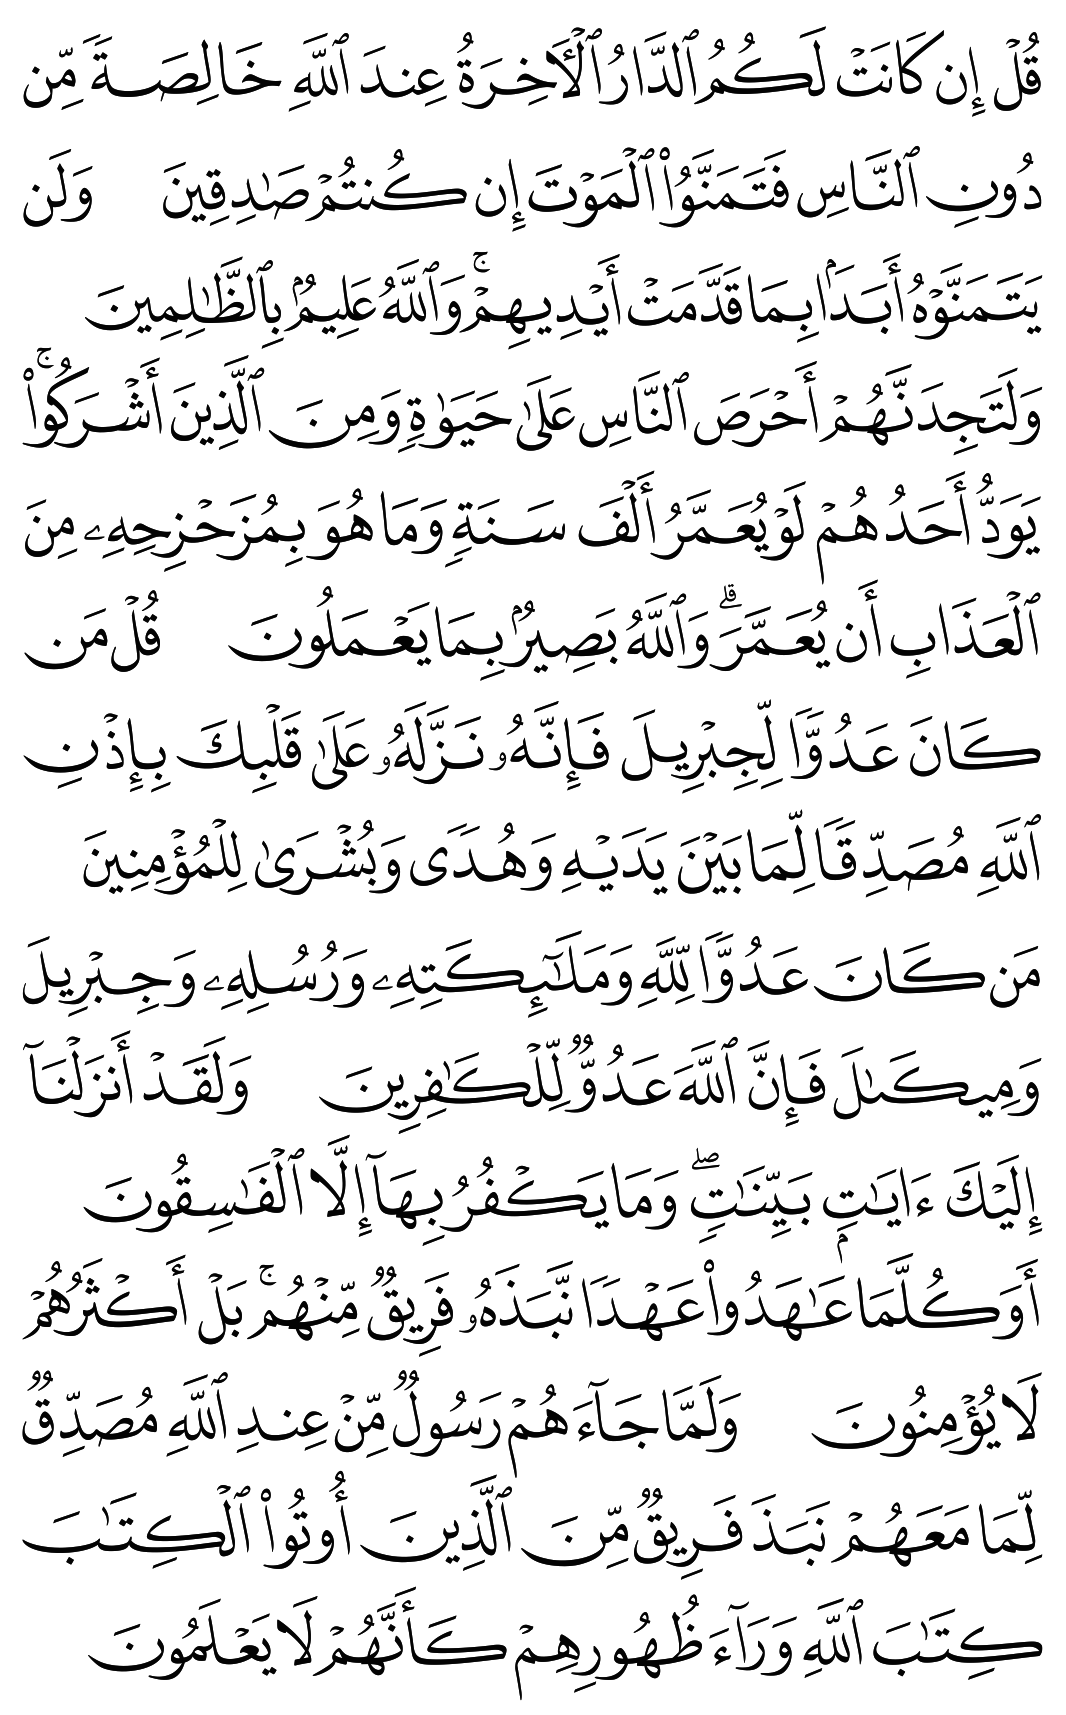 قُلْ إِن كَانَتْ لَكُمُ ٱلدَّارُ ٱلْأَخِرَةُ عِندَ ٱللَّهِ خَالِصَةً مِّن
دُونِ ٱلنَّاسِ فَتَمَنَّوُا۟ ٱلْمَوْتَ إِن كُنتُمْ صَٰدِقِينَ وَلَن
يَتَمَنَّوْهُ أَبَدَۢا بِمَا قَدَّمَتْ أَيْدِيهِمْ ۚ وَٱللَّهُ عَلِيمُۢ بِٱلظَّٰلِمِينَ
وَلَتَجِدَنَّهُمْ أَحْرَصَ ٱلنَّاسِ عَلَىٰ حَيَوٰةٍ وَمِنَ ٱلَّذِينَ أَشْرَكُوا۟ ۚ
يَوَدُّ أَحَدُهُمْ لَوْ يُعَمَّرُ أَلْفَ سَنَةٍ وَمَا هُوَ بِمُزَحْزِحِهِۦ مِنَ
ٱلْعَذَابِ أَن يُعَمَّرَ ۗ وَٱللَّهُ بَصِيرُۢ بِمَا يَعْمَلُونَ قُلْ مَن
كَانَ عَدُوًّا لِّجِبْرِيلَ فَإِنَّهُۥ نَزَّلَهُۥ عَلَىٰ قَلْبِكَ بِإِذْنِ
ٱللَّهِ مُصَدِّقًا لِّمَا بَيْنَ يَدَيْهِ وَهُدًى وَبُشْرَىٰ لِلْمُؤْمِنِينَ
مَن كَانَ عَدُوًّا لِّلَّهِ وَمَلَٰٓئِكَتِهِۦ وَرُسُلِهِۦ وَجِبْرِيلَ
وَمِيكَىٰلَ فَإِنَّ ٱللَّهَ عَدُوٌّ لِّلْكَٰفِرِينَ وَلَقَدْ أَنزَلْنَآ
إِلَيْكَ ءَايَٰتِۭ بَيِّنَٰتٍ ۖ وَمَا يَكْفُرُ بِهَآ إِلَّا ٱلْفَٰسِقُونَ
أَوَكُلَّمَا عَٰهَدُوا۟ عَهْدًا نَّبَذَهُۥ فَرِيقٌ مِّنْهُم ۚ بَلْ أَكْثَرُهُمْ
لَا يُؤْمِنُونَ وَلَمَّا جَآءَهُمْ رَسُولٌ مِّنْ عِندِ ٱللَّهِ مُصَدِّقٌ
لِّمَا مَعَهُمْ نَبَذَ فَرِيقٌ مِّنَ ٱلَّذِينَ أُوتُوا۟ ٱلْكِتَٰبَ
كِتَٰبَ ٱللَّهِ وَرَآءَ ظُهُورِهِمْ كَأَنَّهُمْ لَا يَعْلَمُونَ